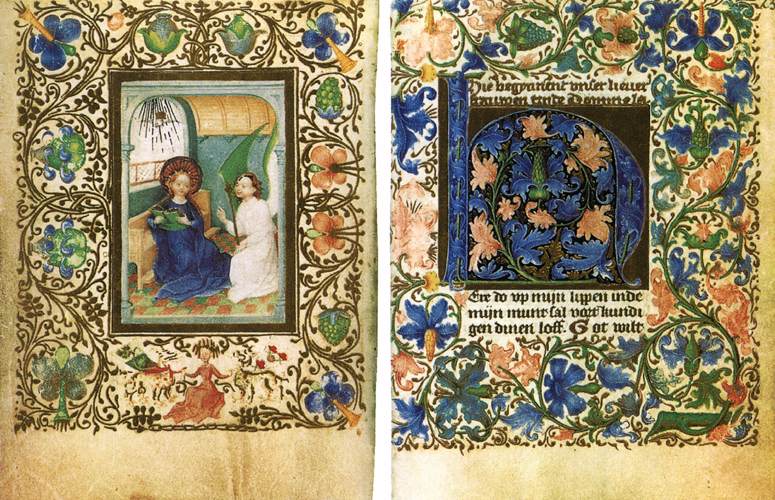 Hie begynnent vnser lieuer
vrauwen Domine la
HEre do vp mijn lippen inde
mijn munt sal vort kundi
gen dinen loff. Got wilt